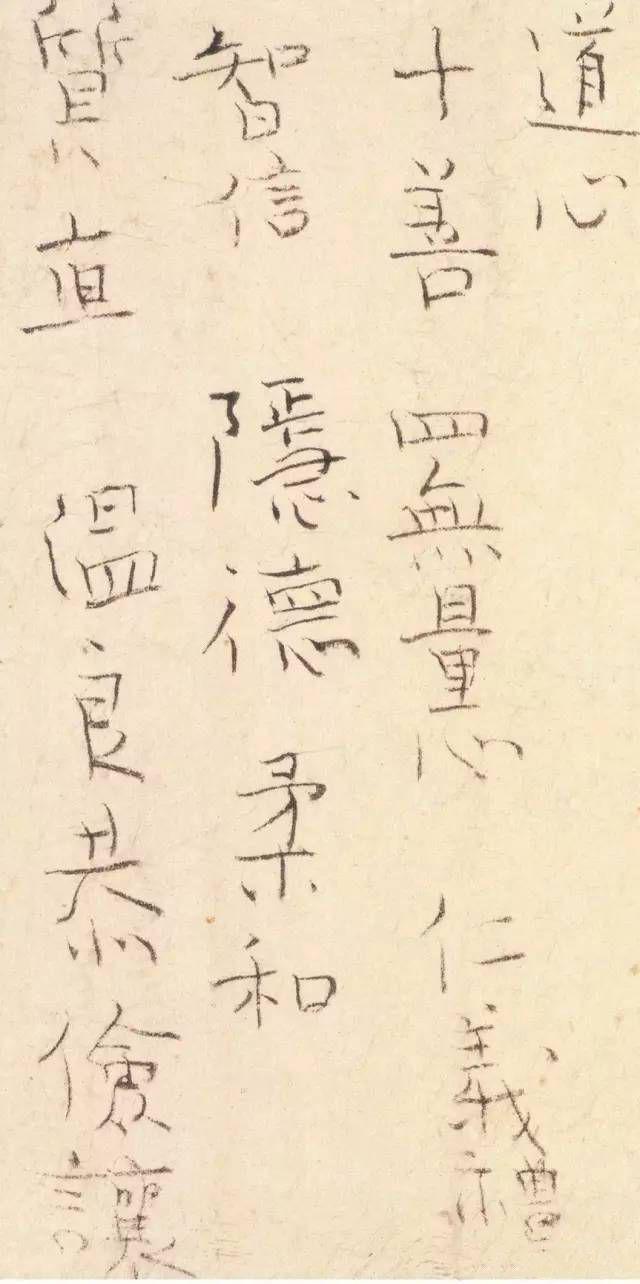 道心
十善 四無量心 仁義禮
智信 隱德 柔和
質直 温良恭儉讓